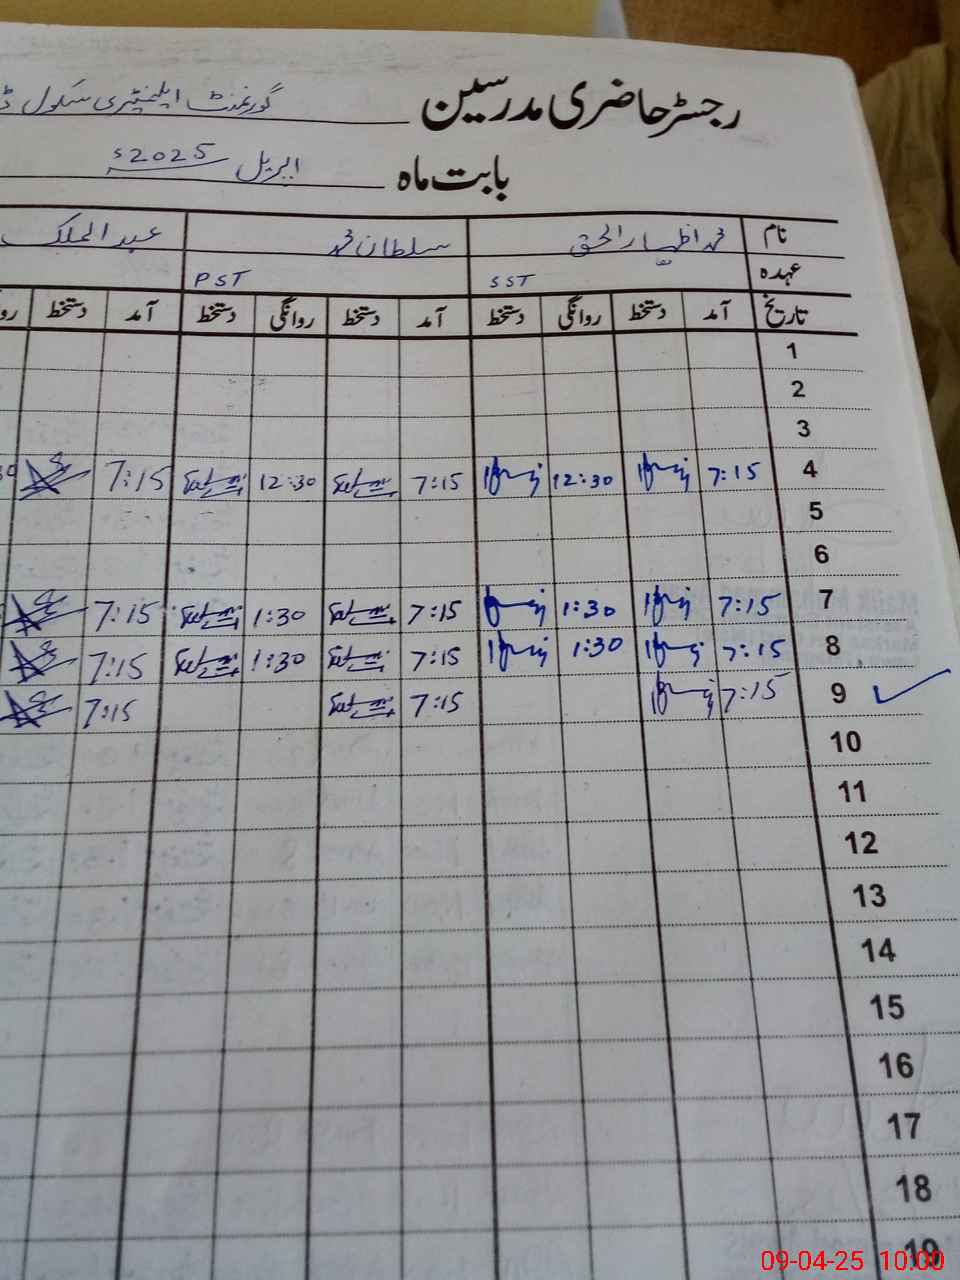 رجسٹر حاضری مدرسین گورنمنٹ ایلیمنٹری سکول
بابت ماہ اپریل 2025ء
نام محمد اظہار الحق سلطان محمد عبد الملک
عہدہ SST PST
تاریخ آمد دستخط روانگی دستخط آمد دستخط روانگی دستخط آمد دستخط
1
2
3
4 7:15 12:30 7:15 12:30 7:15
5
6
7 7:15 1:30 7:15 1:30 7:15
8 7:15 1:30 7:15 1:30 7:15
9 7:15 7:15 7:15
10
11
12
13
14
15
16
17
18
19
09-04-25 10:00